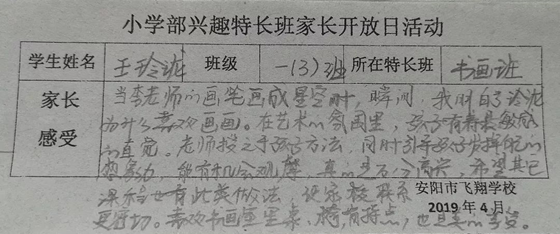 小学部兴趣特长班家长开放日活动
学生姓名 王玲泷 班级 一(3)班 所在特长班 书画班
家长感受
当李老师的画笔画成星空时，瞬间，我明白了玲泷
为什么喜欢画画。在艺术的氛围里，孩子有特具敏感
的直觉。老师授之于好方法，同时引导孩子发挥他的
想象力，能有机会观摩，真的是十分高兴，希望其它
课程也有此类做法，使家校联系
更密切。喜欢书画室里桌、椅有特点，也是真的享受。
安阳市飞翔学校
2019年4月